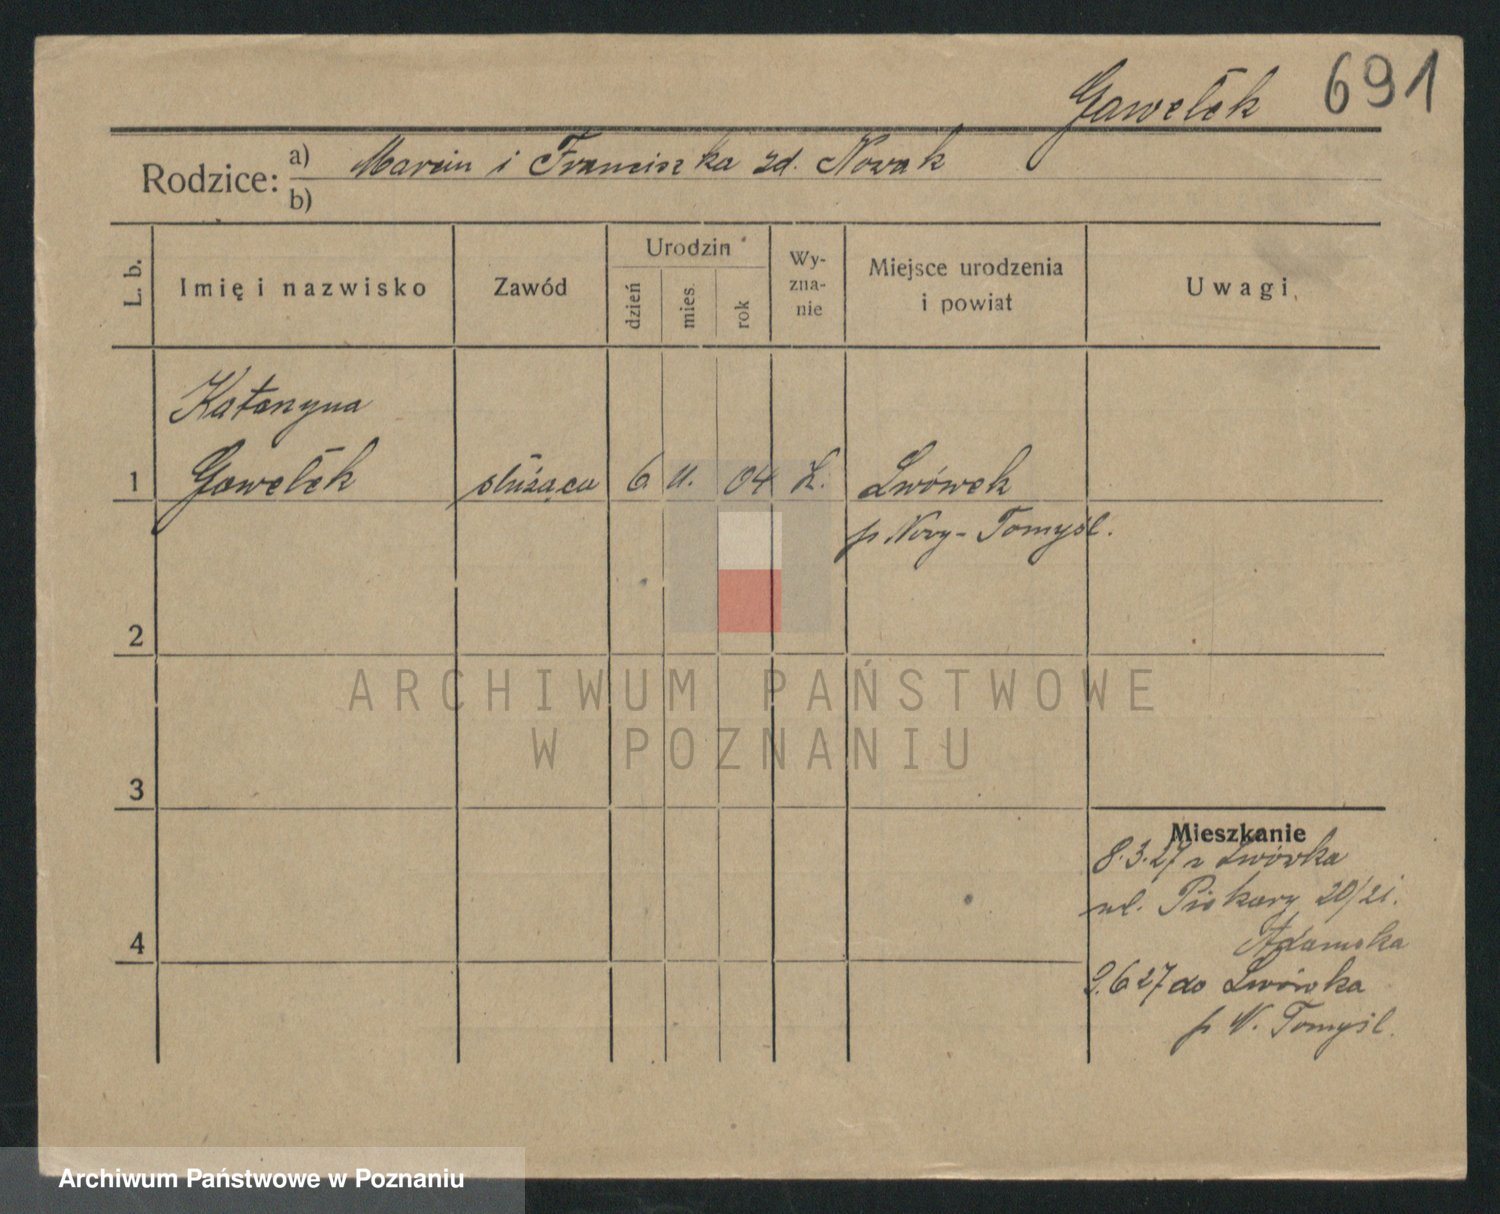 Gawełek 691
Rodzice: a) Marcin i Franciszka zd. Nowak
b)
L. b. Imię i nazwisko Zawód Urodzin dzień mies. rok Wy-zna-nie Miejsce urodzenia i powiat Uwagi
Katarzyna
1 Gawełek służąca 6 11. 04 k. Lwówek
p. Nowy-Tomyśl.
2
ARCHIWUM PAŃSTWOWE
W POZNANIU
3
Mieszkanie
8.3.27 z Lwówka
ul. Piekary 20/21.
Adamska
9.6 27 do Lwówka
p N. Tomyśl.
4
Archiwum Państwowe w Poznaniu